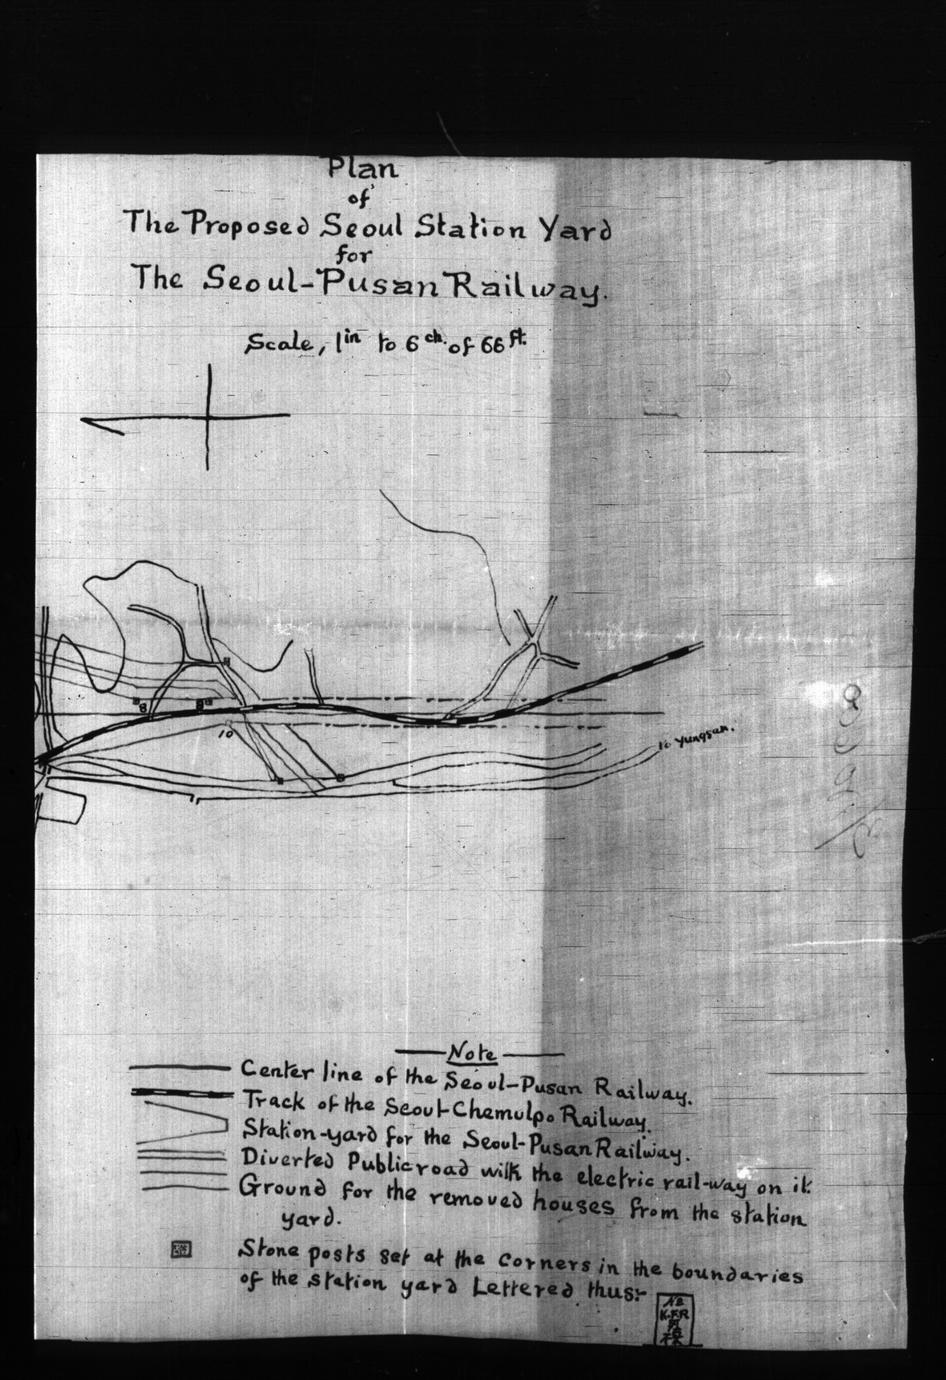 Plan
of
The Proposed Seoul Station Yard
for
The Seoul-Pusan Railway.
Scale, 1in to 6ch. of 66ft.
8
10
to Yungsan.
Note
Center line of the Seoul-Pusan Railway.
Track of the Seoul-Chemulpo Railway.
Station-yard for the Seoul-Pusan Railway.
Diverted Public road with the electric rail-way on it.
Ground for the removed houses from the station
yard.
Stone posts set at the corners in the boundaries
of the station yard Lettered thus:-